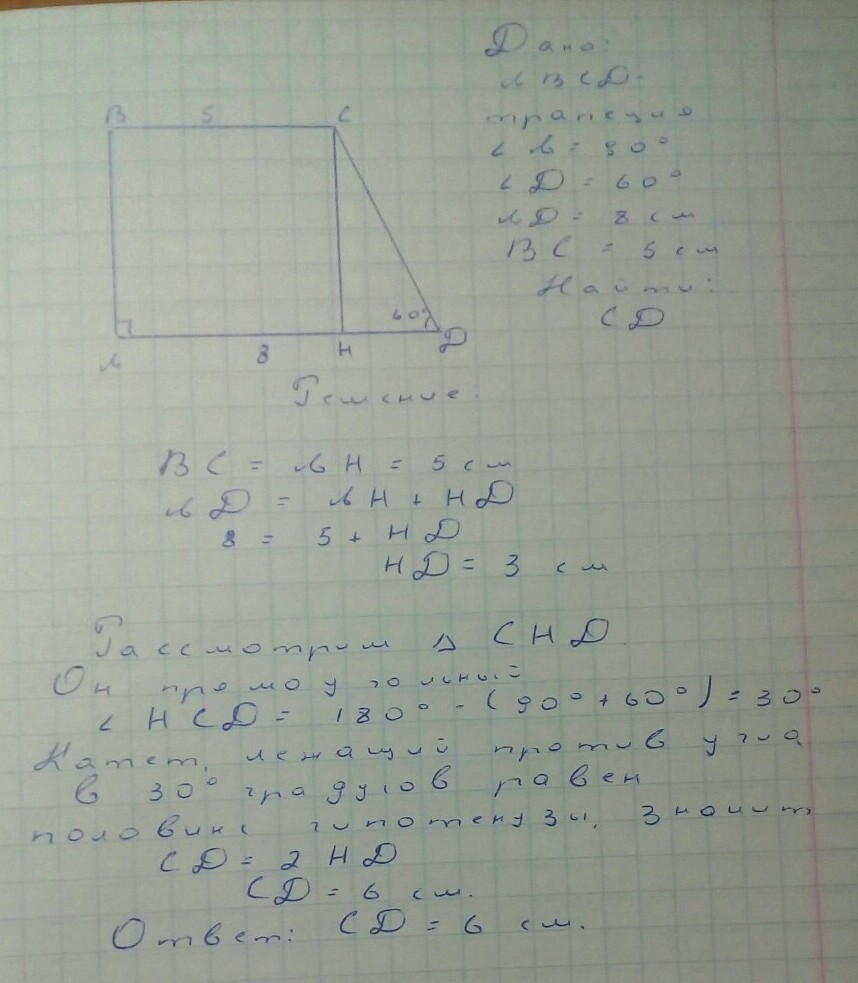 Дано:
ABCD-
трапеция
∠ A = 90°
∠ D = 60°
AD = 8 см
BC = 5 см
Найти:
CD
B 5 C
60°
A 8 H D
Решение:
BC = AH = 5 см
AD = AH + HD
8 = 5 + HD
HD = 3 см
Рассмотрим Δ CHD.
Он прямоугольный
∠ HCD = 180° - (90° + 60°) = 30°
Катет, лежащий против угла
в 30° градусов равен
половине гипотенузы. Значит
CD = 2 HD
CD = 6 см.
Ответ: CD = 6 см.